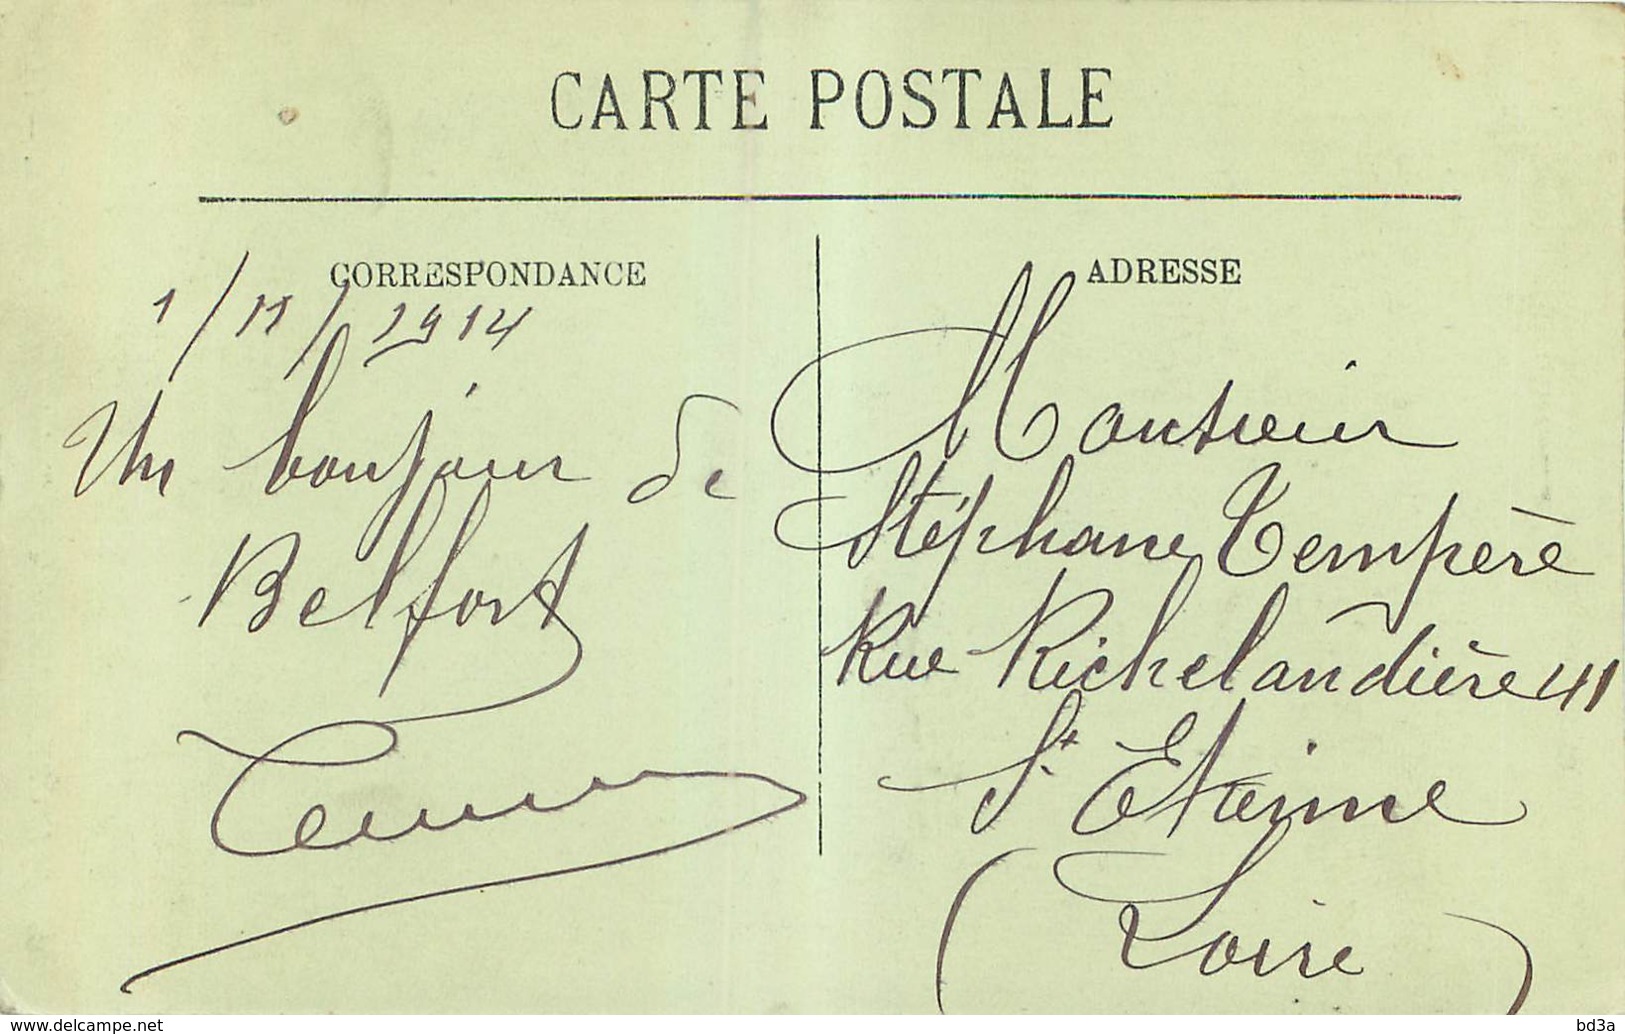 CARTE POSTALE
CORRESPONDANCE
1/11/1914
Un bonjour de
Belfort
ADRESSE
Monsieur
Stéphane Tempère
Rue Richelandière 41
St Etienne
(Loire)
www.delcampe.net
bd3a